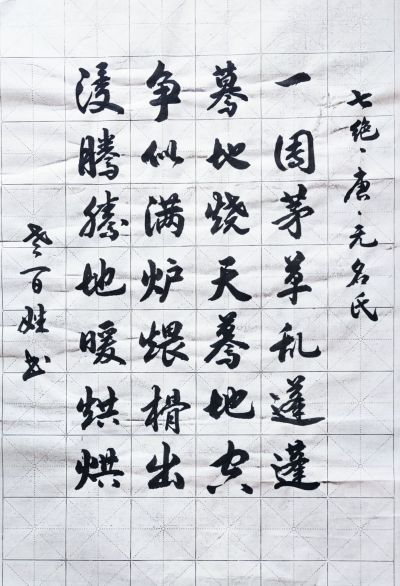 七绝、唐、无名氏
一团茅草乱蓬蓬
蓦地烧天蓦地空
争似满炉煨榾出
漫腾腾地暖烘烘
老百姓书